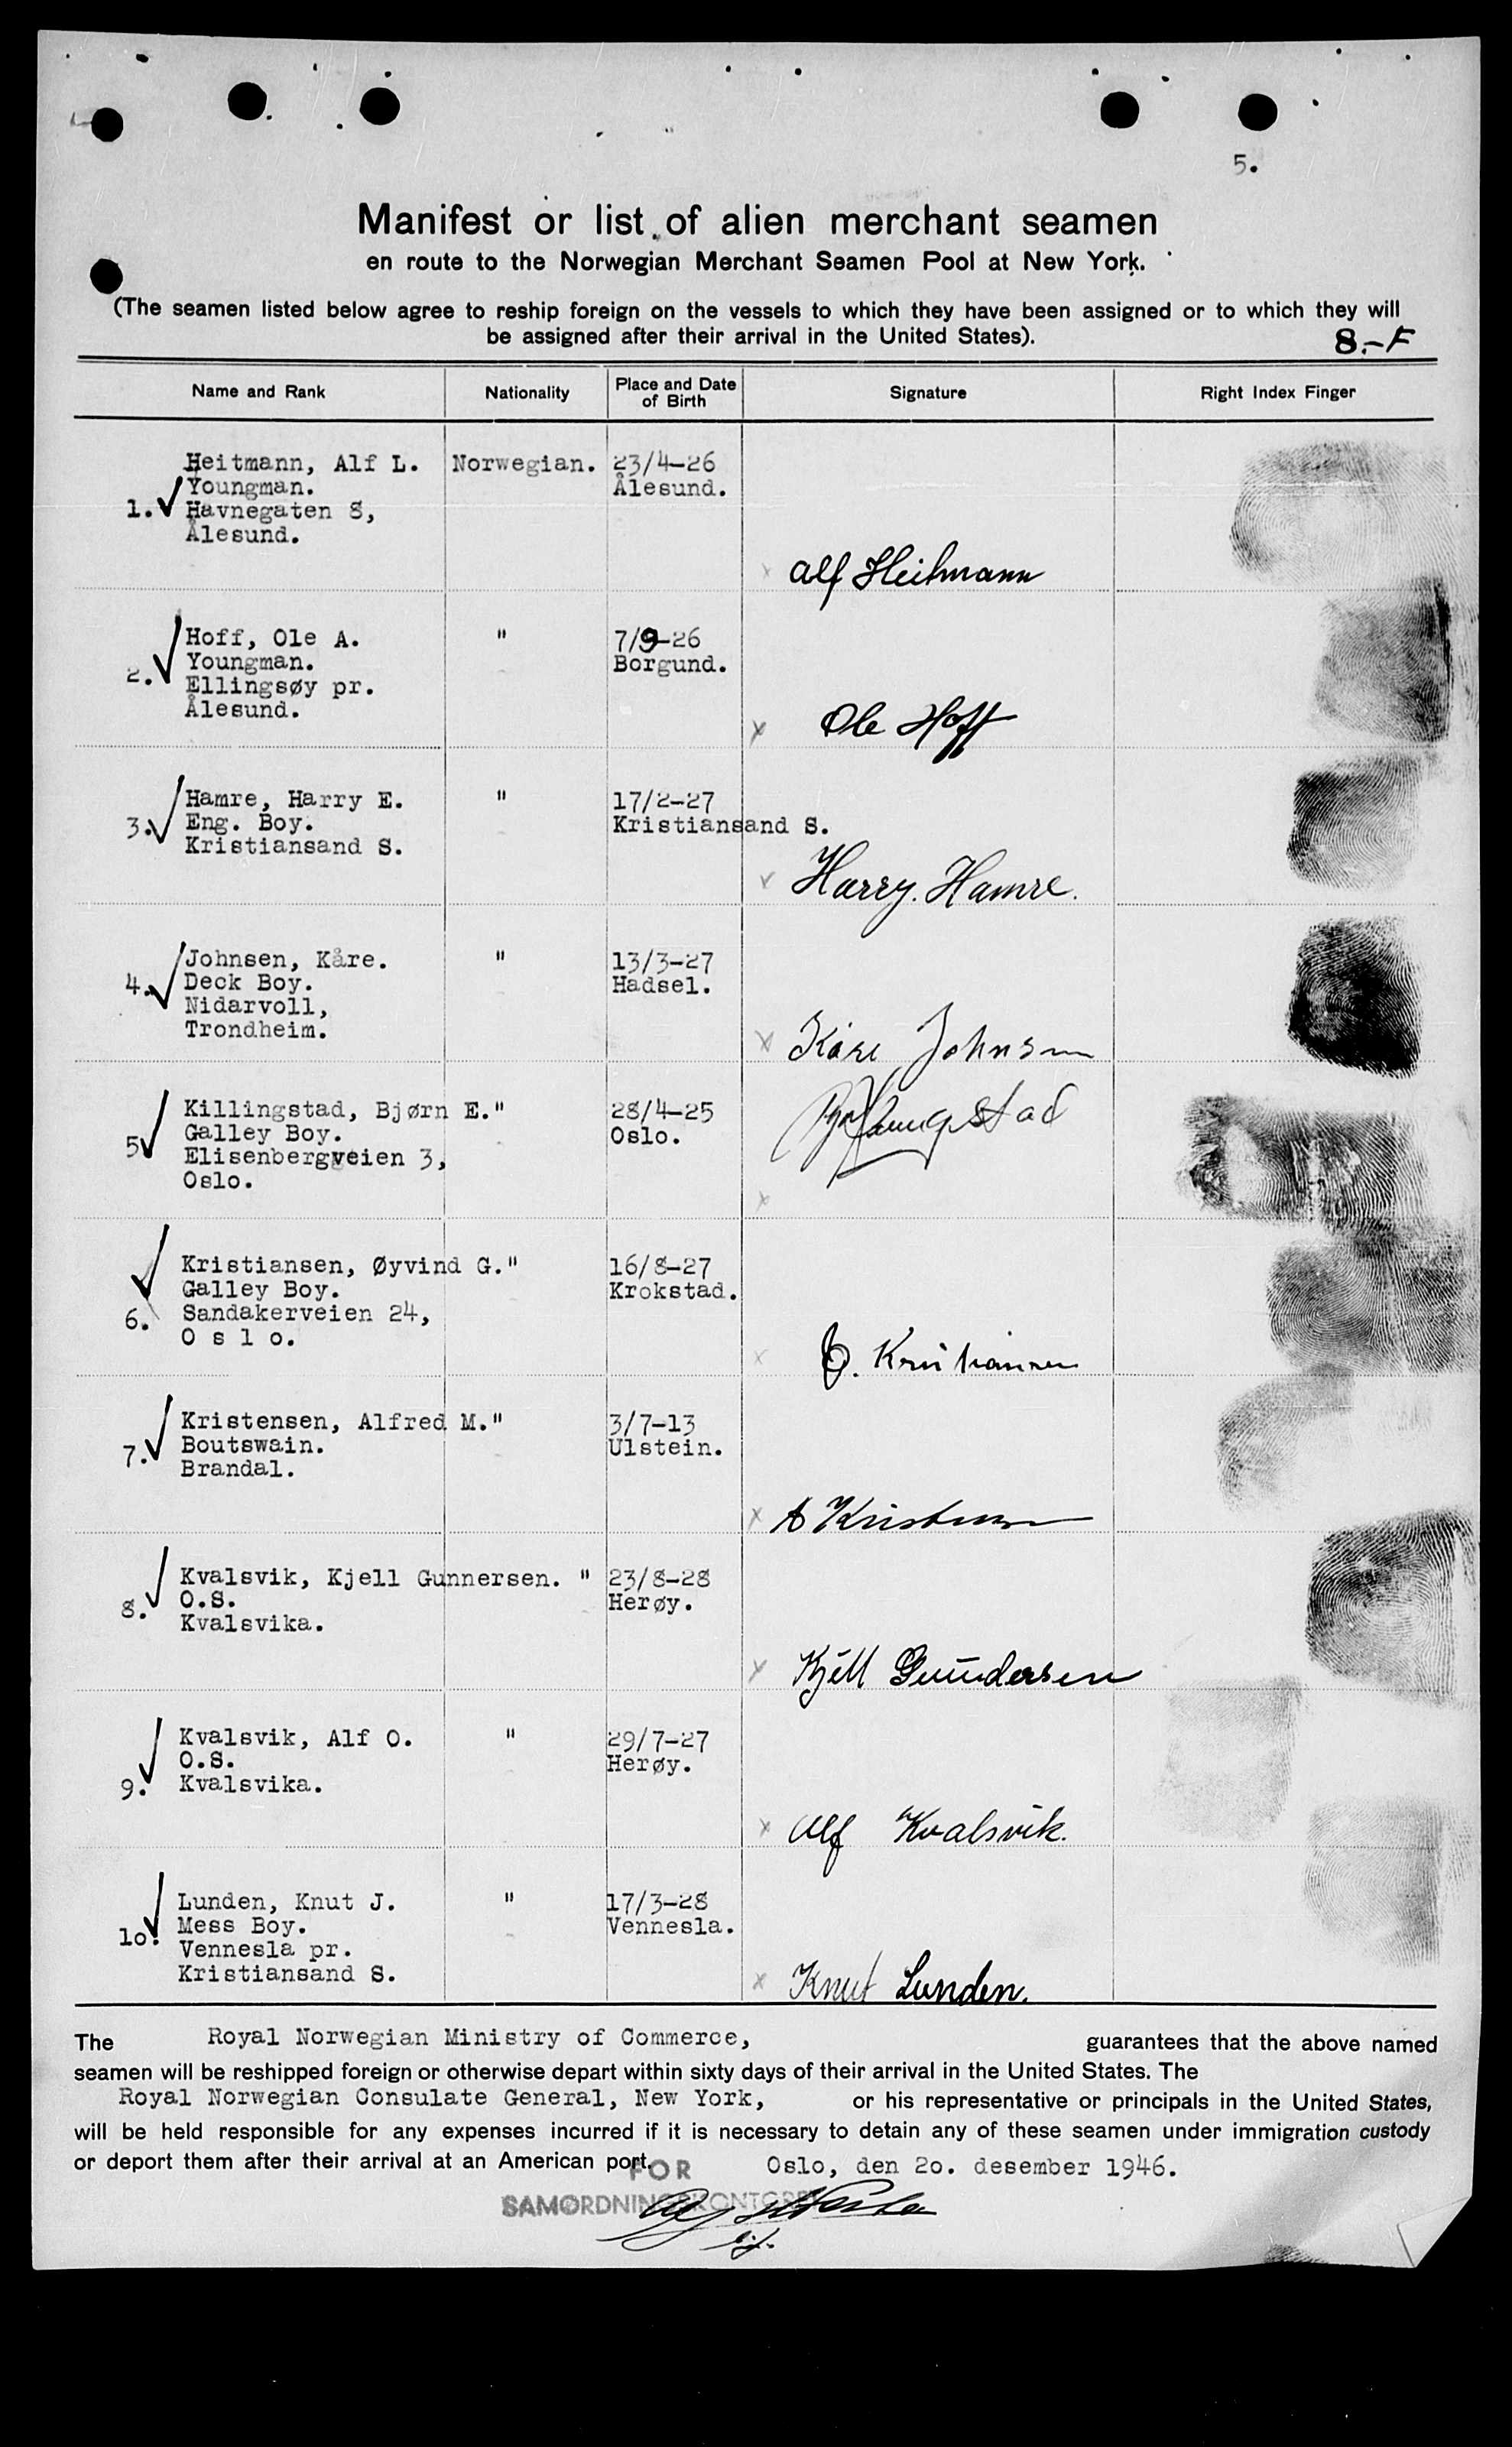 5.
Manifest or list of alien merchant seamen
en route to the Norwegian Merchant Seamen Pool at New York.
(The seamen listed below agree to reship foreign on the vessels to which they have been assigned or to which they will
be assigned after their arrival in the United States).
8.-F
Name and Rank Nationality Place and Date of Birth Signature Right Index Finger
1. Heitmann, Alf L. Norwegian. 23/4-26
Youngman. Ålesund.
Havnegaten 8,
Ålesund.
Alf Heitmann
2. Hoff, Ole A. " 7/9-26
Youngman. Borgund.
Ellingsøy pr.
Ålesund.
Ole Hoff
3. Hamre, Harry E. " 17/2-27
Eng. Boy. Kristiansand S.
Kristiansand S.
Harry. Hamre.
4. Johnsen, Kåre. " 13/3-27
Deck Boy. Hadsel.
Nidarvoll,
Trondheim.
Kåre Johnsen
5 Killingstad, Bjørn E. " 28/4-25
Galley Boy. Oslo.
Elisenbergveien 3,
Oslo.
6. Kristiansen, Øyvind G. " 16/8-27
Galley Boy. Krokstad.
Sandakerveien 24,
O s l o.
Ø. Kristiansen
7. Kristensen, Alfred M. " 3/7-13
Boutswain. Ulstein.
Brandal.
A Kristensen
8. Kvalsvik, Kjell Gunnersen. " 23/8-28
O.S. Herøy.
Kvalsvika.
Kjell Gundersen
9. Kvalsvik, Alf O. " 29/7-27
O.S. Herøy.
Kvalsvika.
Alf Kvalsvik.
10. Lunden, Knut J. " 17/3-28
Mess Boy. Vennesla.
Vennesla pr.
Kristiansand S.
Knut Lunden.
The Royal Norwegian Ministry of Commerce, guarantees that the above named
seamen will be reshipped foreign or otherwise depart within sixty days of their arrival in the United States. The
Royal Norwegian Consulate General, New York, or his representative or principals in the United States,
will be held responsible for any expenses incurred if it is necessary to detain any of these seamen under immigration custody
or deport them after their arrival at an American port.
FOR Oslo, den 20. desember 1946.
SAMORDNINGSKONTORET